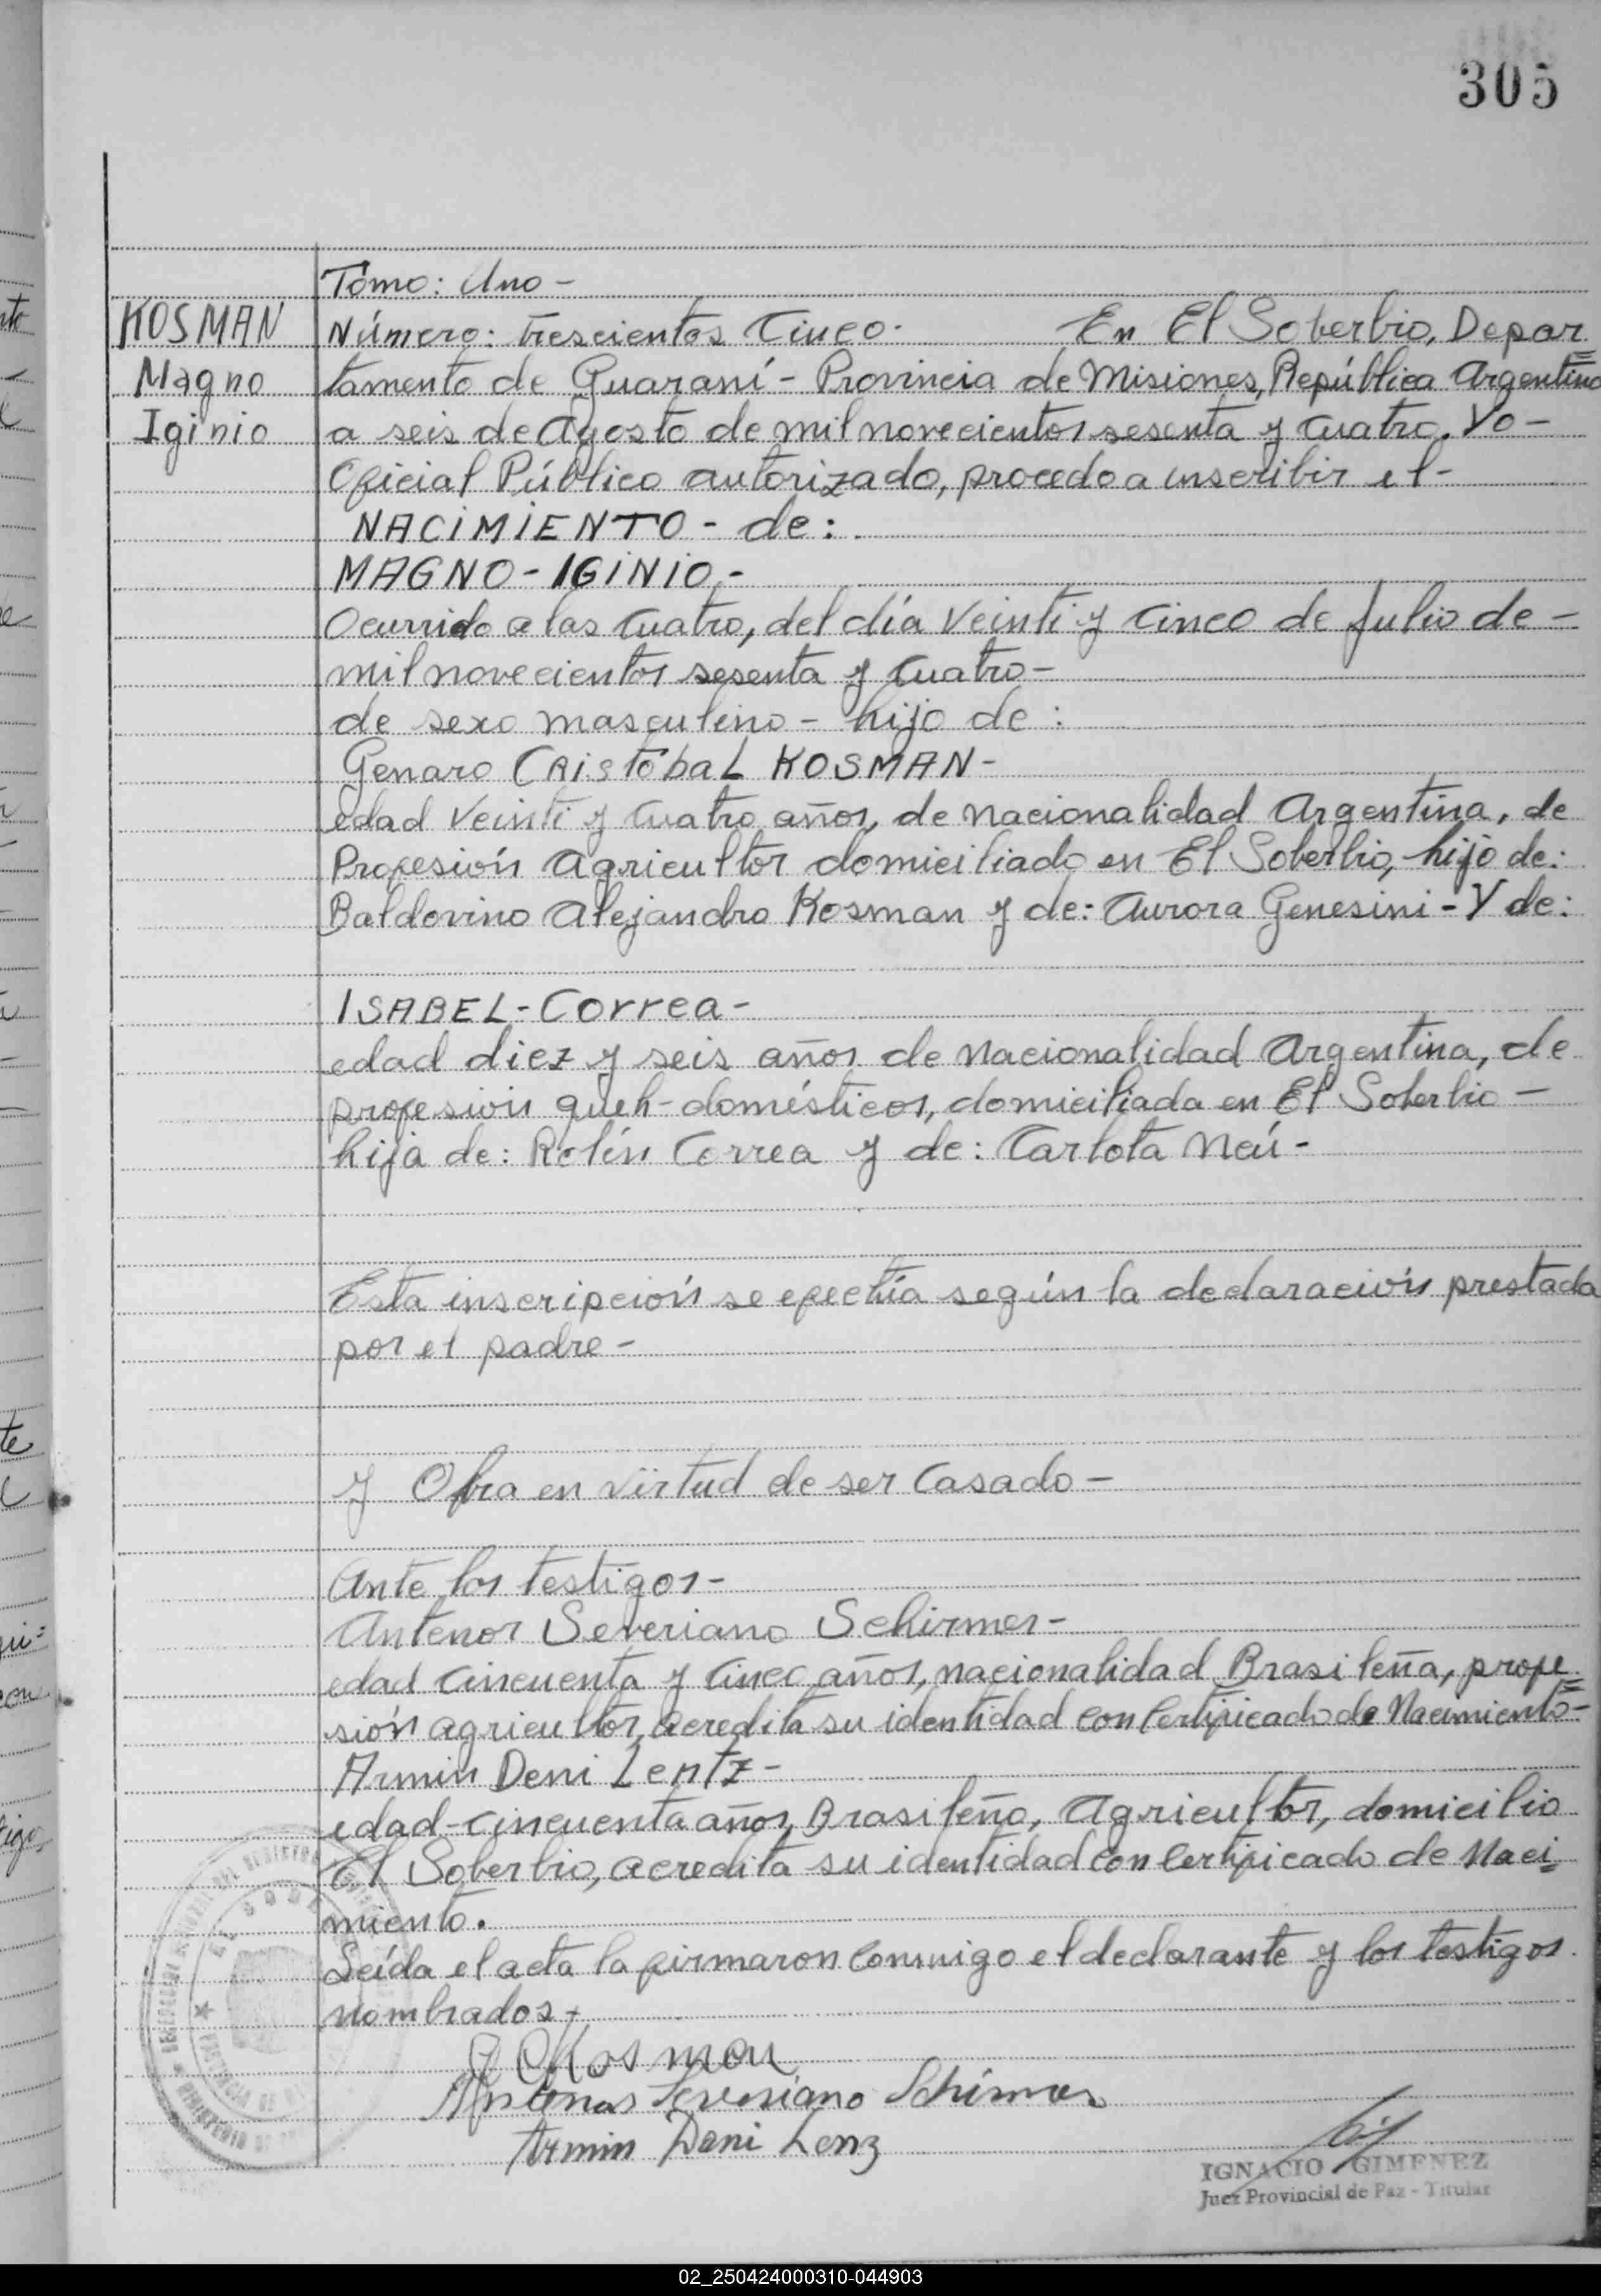 305
Tomo: Uno -
KOSMAN
Magno
Iginio
Número: trescientos Cinco. En El Soberbio, Depar=
tamento de Guaraní - Provincia de Misiones, República Argentina
a seis de Agosto de mil novecientos sesenta y cuatro. Yo -
Oficial Público autorizado, procedo a inscribir el -
NACIMIENTO - de:
MAGNO - IGINIO -
Ocurrido a las cuatro, del día Veinti y Cinco de Julio de -
mil novecientos sesenta y cuatro -
de sexo masculino - hijo de:
Genaro Cristóbal KOSMAN -
edad Veinti y cuatro años, de nacionalidad Argentina, de
Profesión agricultor domiciliado en El Soberbio, hijo de:
Baldovino Alejandro Kosman y de: Aurora Genesini - Y de:
ISABEL - Correa -
edad diez y seis años de nacionalidad Argentina, de
profesión queh - domésticos, domiciliada en El Soberbio -
hija de: Rolín Correa y de: Carlota Neú -
Esta inscripción se efectúa según la declaración prestada
por el padre -
y Obra en virtud de ser Casado -
Ante los testigos -
Antenor Severiano Schirmer -
edad cincuenta y cinco años, nacionalidad Brasileña, profe=
sión agricultor, acredita su identidad con Certificado de Nacimiento -
Armin Deni Lentz -
edad - cincuenta años, Brasileño, Agricultor, domicilio
El Soberbio, acredita su identidad con Certificado de Naci=
miento.
Leída el acta la firmaron conmigo el declarante y los testigos
nombrados -
Kosman
Antenor Severiano Schirmer
Armin Deni Lenz
IGNACIO GIMENEZ
Juez Provincial de Paz - Titular
02_250424000310-044903